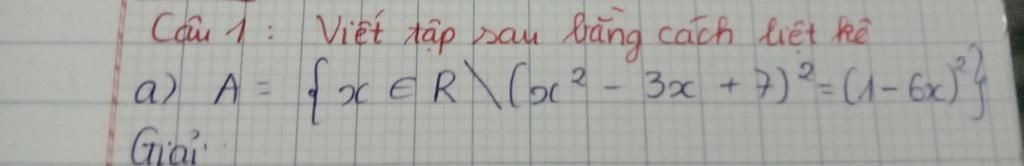 Câu 1: Viết tập sau bằng cách liệt kê
a) A = {x ∈ R \ (x² - 3x + 7)² = (1 - 6x)²}
Giải: